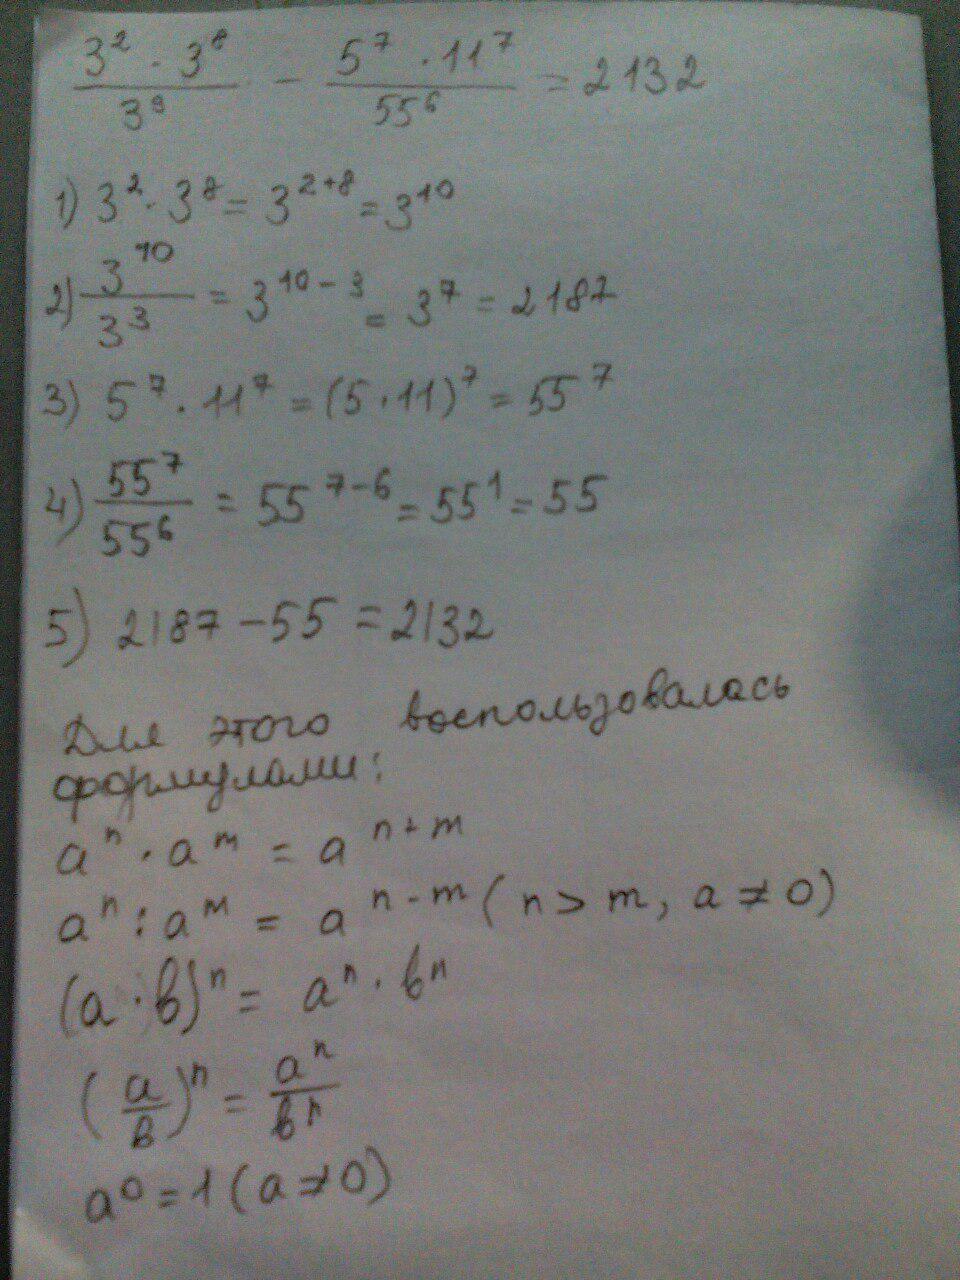 3² · 3⁸ / 3⁹ − 5⁷ · 11⁷ / 55⁶ = 2132
1) 3² · 3⁸ = 3²⁺⁸ = 3¹⁰
2) 3¹⁰ / 3³ = 3¹⁰⁻³ = 3⁷ = 2187
3) 5⁷ · 11⁷ = (5 · 11)⁷ = 55⁷
4) 55⁷ / 55⁶ = 55⁷⁻⁶ = 55¹ = 55
5) 2187 − 55 = 2132
Для этого воспользовалась
формулами:
aⁿ · aᵐ = aⁿ⁺ᵐ
aⁿ : aᵐ = aⁿ⁻ᵐ (n > m, a ≠ 0)
(a · в)ⁿ = aⁿ · вⁿ
(a / в)ⁿ = aⁿ / вⁿ
a⁰ = 1 (a ≠ 0)